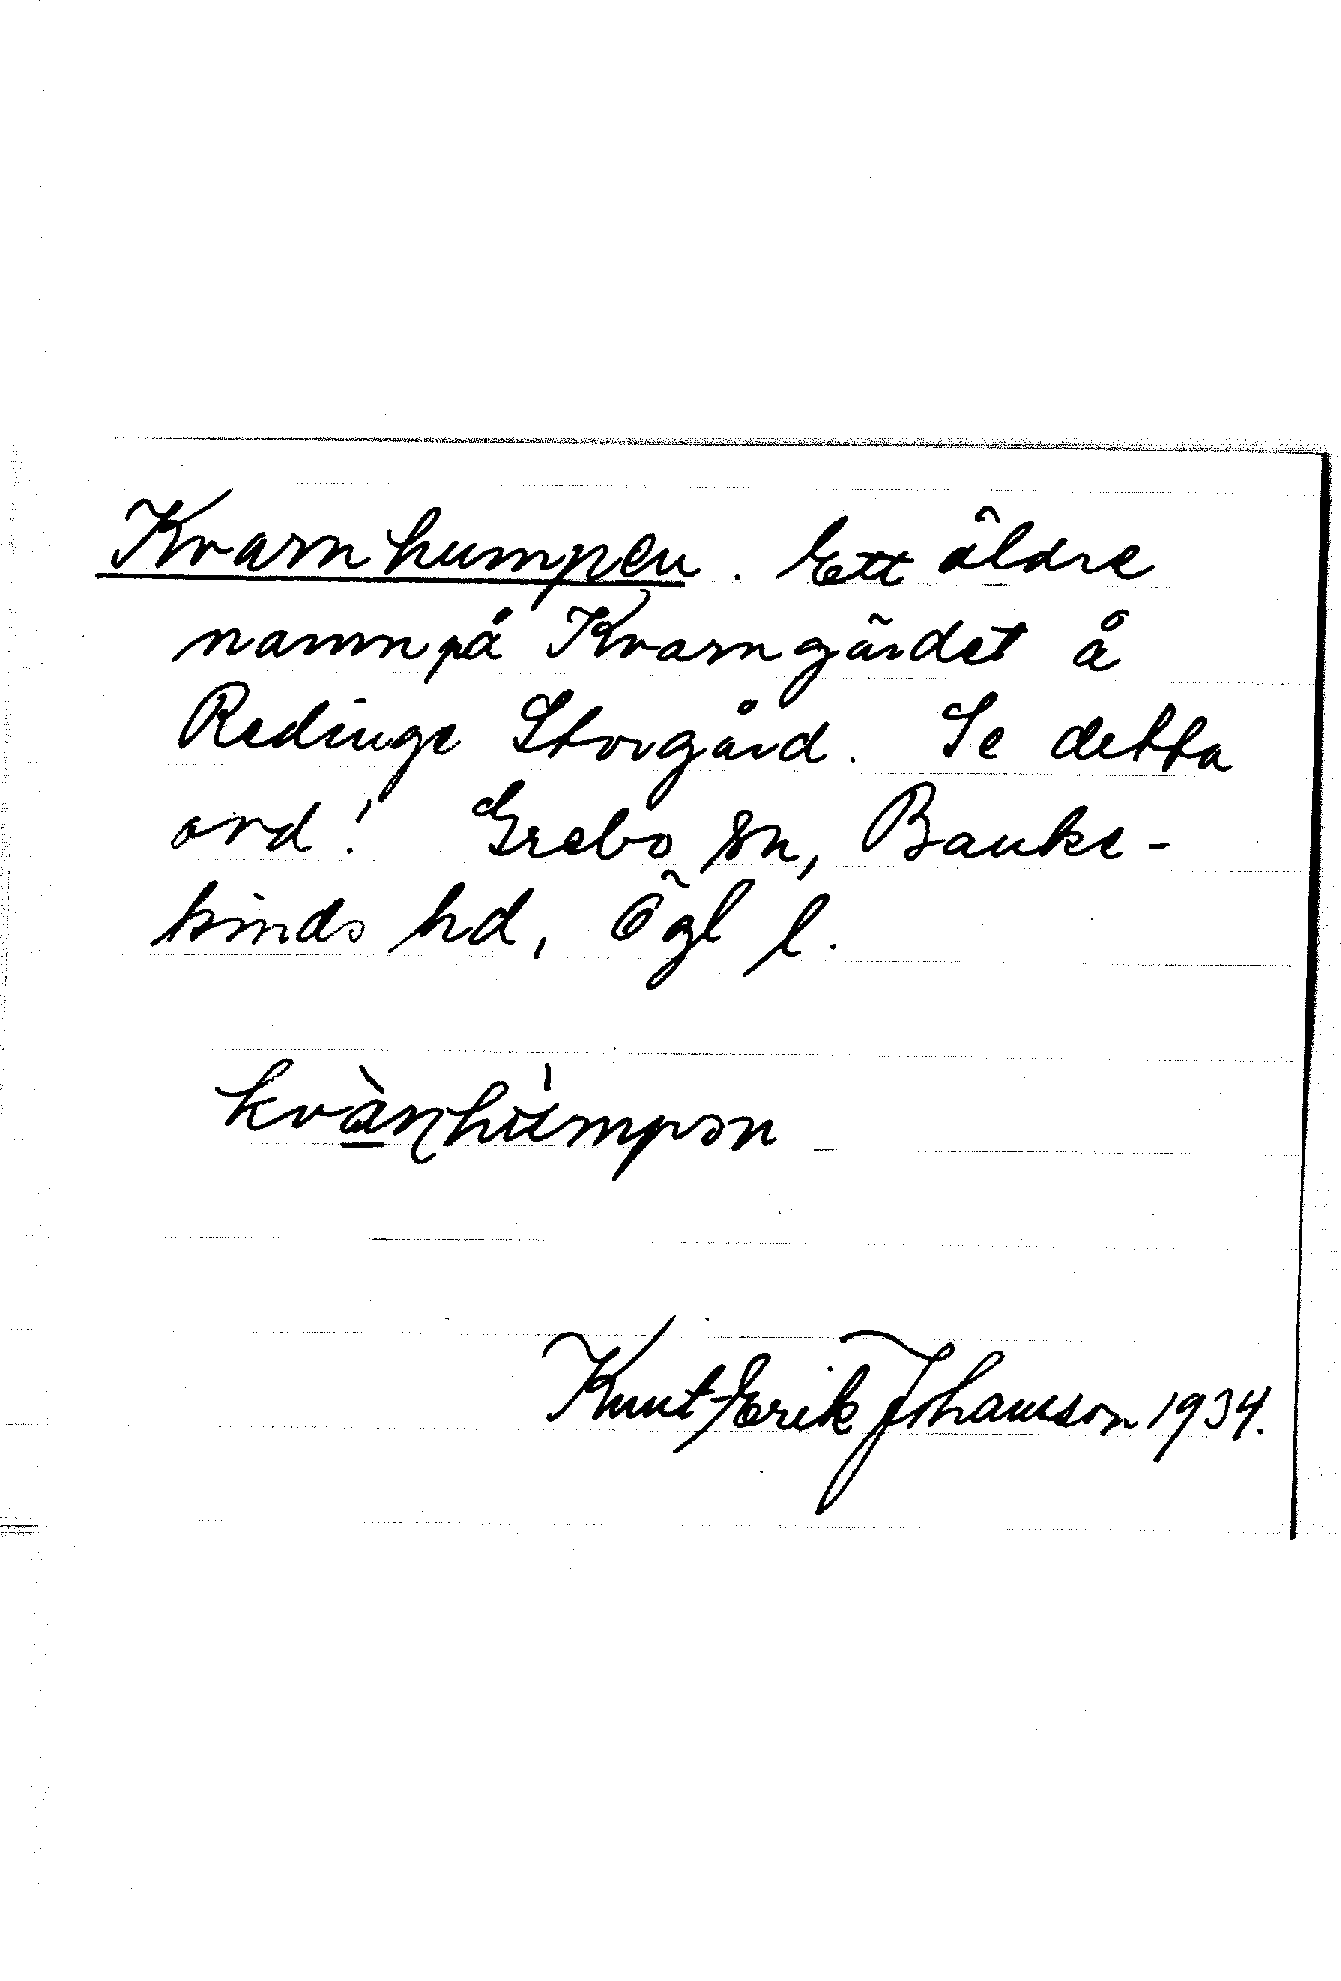 Kvarnhumpen. Ett äldre
namn på Kvarngärdet å
Redinge Storgård. Se detta
ord! Grebo sn, Banke-
kinds hd, Ögl l.
kvàɳhúmpən
Knut-Erik Johansson 1934.